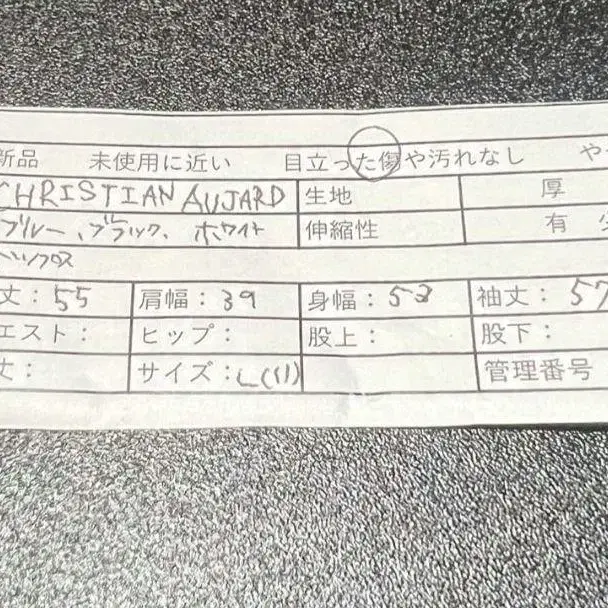 新品 未使用に近い 目立った傷や汚れなし や
CHRISTIAN AUJARD 生地 厚
ブルー、ブラック、ホワイト 伸縮性 有
丈：55 肩幅：39 身幅：53 袖丈：57
エスト： ヒップ： 股上： 股下：
丈： サイズ：L(11) 管理番号